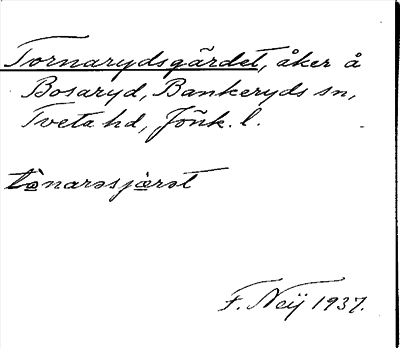 Tornarydsgärdet, åker å
Bosaryd, Bankeryds sn,
Tveta hd, Jönk. l.
tònarəsjærət
F. Neij 1937.